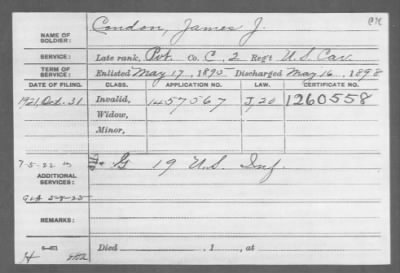 CPL
NAME OF SOLDIER: Condon, James J.
SERVICE: Late rank, Pvt. Co. C, 2 Reg't U.S. Cav.
TERM OF SERVICE: Enlisted May 17, 1895 Discharged May 16, 1898
DATE OF FILING. CLASS. APPLICATION NO. LAW. CERTIFICATE NO.
1921, Oct. 31 Invalid, 1457567 J20 1260558
Widow,
Minor,
7-5-22 G 19 U.S. Inf.
ADDITIONAL SERVICES:
5-8-25
REMARKS:
H
Died , 1 , at